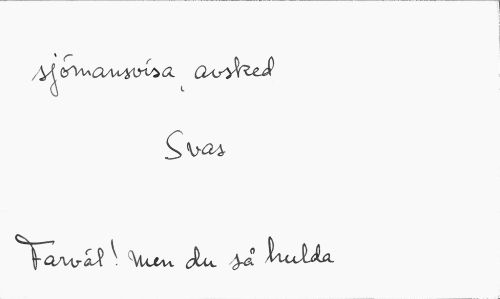 sjömansvisa, avsked
Svas
Farväl! men du så hulda